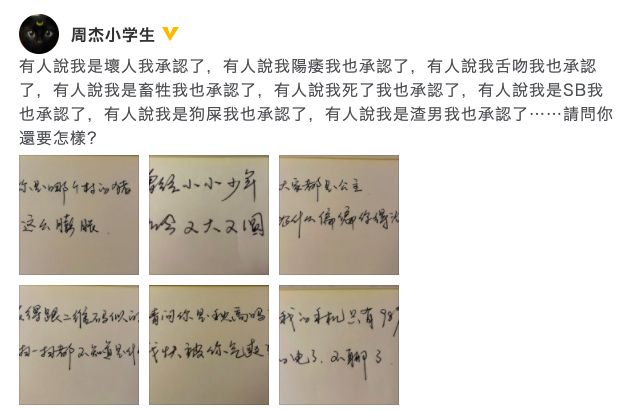 周杰小学生
有人說我是壞人我承認了，有人說我陽痿我也承認了，有人說我舌吻我也承認
了，有人說我是畜牲我也承認了，有人說我死了我也承認了，有人說我是SB我
也承認了，有人說我是狗屎我也承認了，有人說我是渣男我也承認了……請問你
還要怎樣？
你是哪个村的猪
这么膨胀
曾经小小少年
又大又圆
大家都是公主
为什么偏偏你得
得跟二维码似的
扫一扫都不知道是什
请问你是秋高吗
我快被你气爽了
我的手机只有98%
电了，不聊了